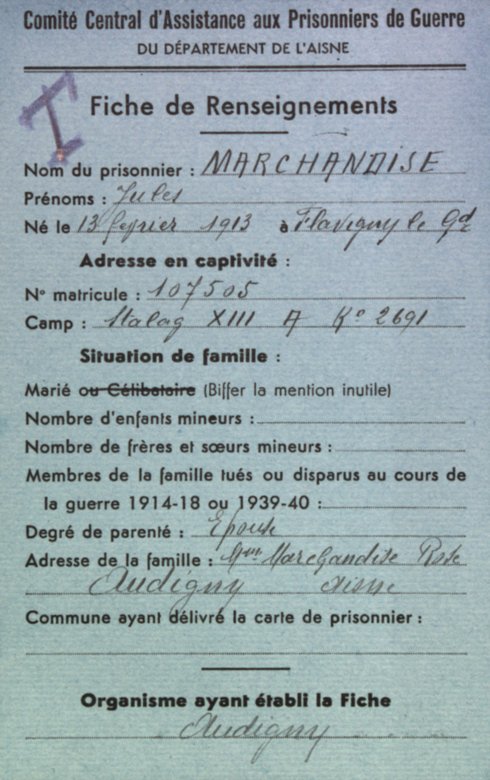 Comité Central d'Assistance aux Prisonniers de Guerre
DU DÉPARTEMENT DE L'AISNE
I
Fiche de Renseignements
Nom du prisonnier : MARCHANDISE
Prénoms : Jules
Né le 13 fevrier 1913 à Flavigny le Gd
Adresse en captivité :
N° matricule : 107505
Camp : Stalag XIII A Ko 2691
Situation de famille :
Marié ou Célibataire (Biffer la mention inutile)
Nombre d'enfants mineurs :
Nombre de frères et sœurs mineurs :
Membres de la famille tués ou disparus au cours de
la guerre 1914-18 ou 1939-40 :
Degré de parenté : Epouse
Adresse de la famille : Mme Marchandise Rose
Audigny Aisne
Commune ayant délivré la carte de prisonnier :
Organisme ayant établi la Fiche
Audigny